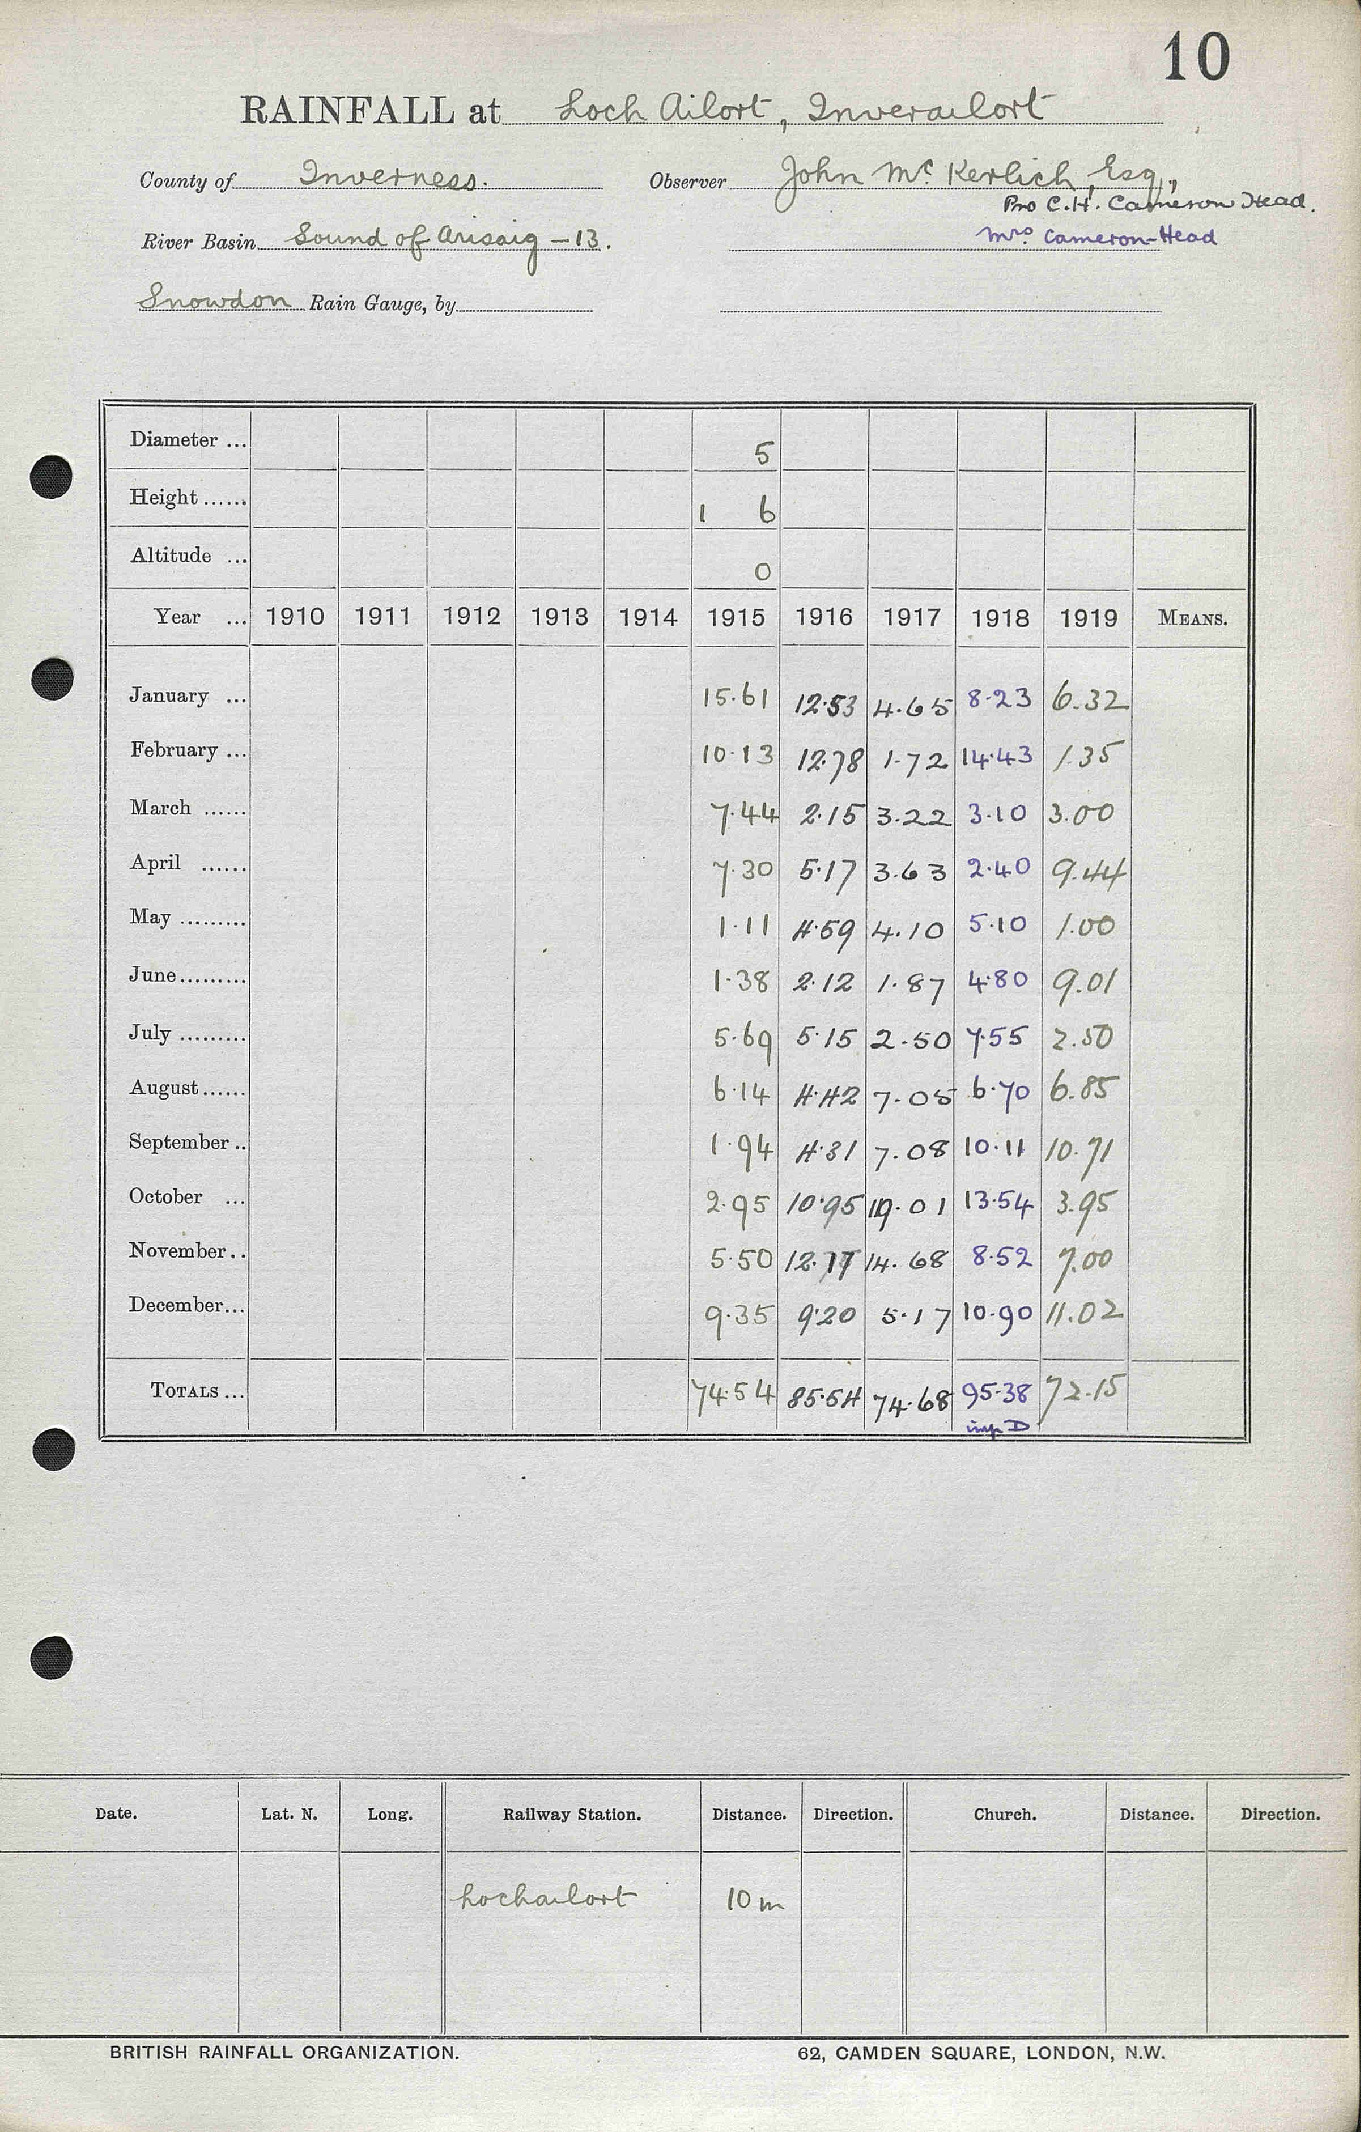 10
RAINFALL at Loch Ailort, Inverailort
County of Inverness. Observer John Mc. Kerlich, Esq.,
Pro C.H. Cameron Head.
River Basin Sound of Arisaig - 13. Mrs Cameron-Head
Snowdon Rain Gauge, by
Diameter ... 5
Height ...... 1 6
Altitude ... 0
Year ... 1910 1911 1912 1913 1914 1915 1916 1917 1918 1919 MEANS.
January ... 15.61 12.53 4.65 8.23 6.32
February ... 10.13 12.78 1.72 14.43 1.35
March ...... 7.44 2.15 3.22 3.10 3.00
April ...... 7.30 5.17 3.63 2.40 9.44
May ......... 1.11 4.59 4.10 5.10 1.00
June ......... 1.38 2.12 1.87 4.80 9.01
July ......... 5.69 5.15 2.50 7.55 2.50
August ...... 6.14 4.42 7.05 6.70 6.85
September .. 1.94 4.31 7.08 10.11 10.71
October ... 2.95 10.95 19.01 13.54 3.95
November .. 5.50 12.17 14.68 8.52 7.00
December ... 9.35 9.20 5.17 10.90 11.02
TOTALS ... 74.54 85.54 74.68 95.38 72.15
Date. Lat. N. Long. Railway Station. Distance. Direction. Church. Distance. Direction.
Lochailort 10 m
BRITISH RAINFALL ORGANIZATION. 62, CAMDEN SQUARE, LONDON, N.W.